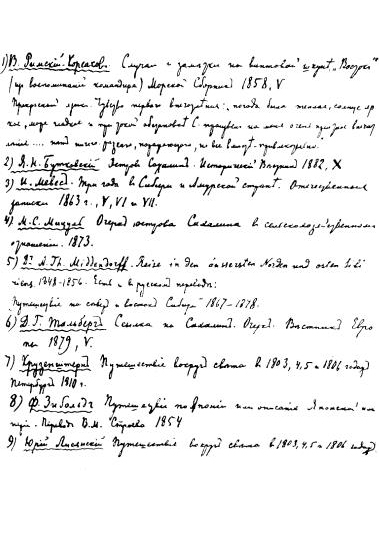 1) В. Римскій-Корсаковъ. Случаи и замѣтки на винтовой шкунѣ „Востокъ"
(изъ воспоминаній командира) Морской Сборникъ 1858, V
Прекрасный Чувство первого погода была теплая, солнце яр
кое, море гладкое и
2) Я. Н. Бутковскій Островъ Сахалинъ. Историческій Вѣстникъ 1882, X
3) И. Мевесъ. Три года въ Сибири и Амурской странѣ. Отечественныя
записки 1863 г., V, VI и VII.
4) М. С. Мицуль Очеркъ острова Сахалина въ сельскохозяйственномъ
отношеніи. 1873.
5) Dr A. Th. Middendorff. Reise in den äussersten Norden und osten Sibi
riens. 1848-1856. Есть и въ русскомъ переводѣ:
Путешествіе на сѣверъ и востокъ Сибири 1867-1878.
6) Д. Г. Тальбергъ Ссылка на Сахалинъ. Очеркъ. Вѣстникъ Евро
пы 1879, V.
7) Крузенштернъ Путешествіе вокругъ свѣта въ 1803, 4, 5 и 1806 годахъ
Петербургъ 1810 г.
8) Ф. Зибольдъ Путешествіе по Японіи или описаніе Японской им
періи. Переводъ В. М. Строева 1854
9) Юрій Лисянскій Путешествіе вокругъ свѣта въ 1803, 4, 5 и 1806 годахъ